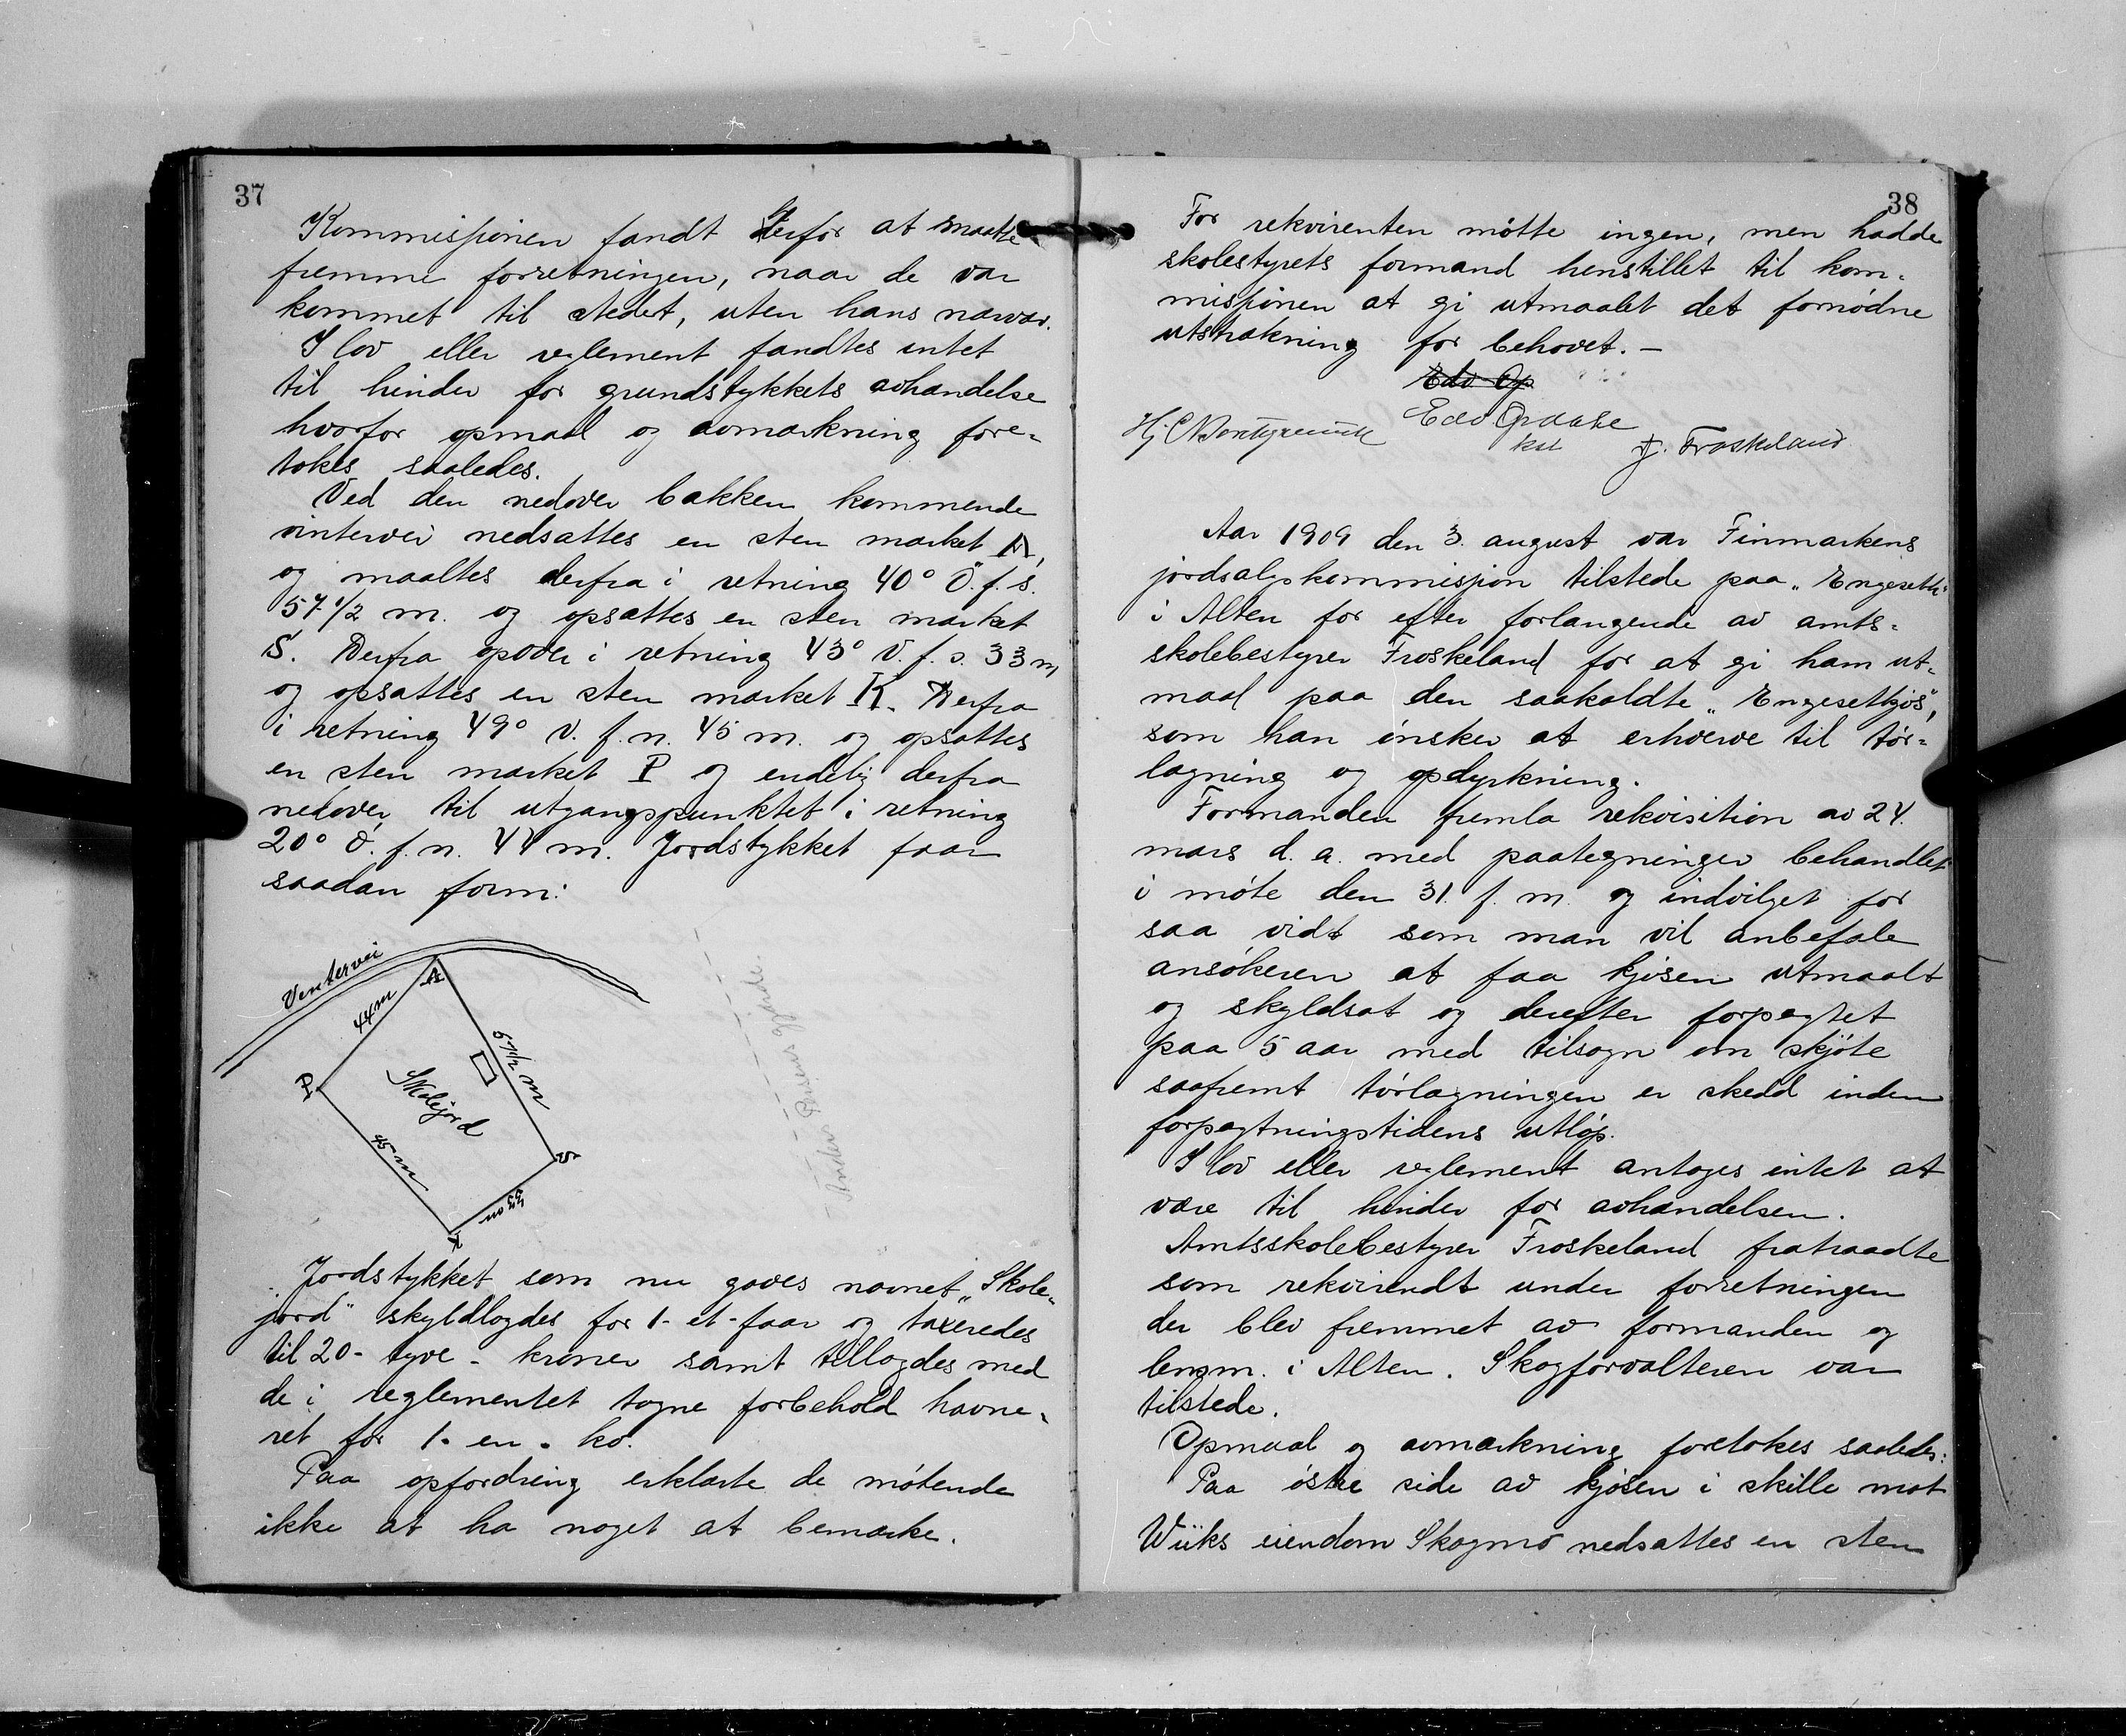 37
Kommissjonen fandt derfor at maatte
fremme forretningen, naar de var
kommet til stedet, uten hans nærvær.
I lov eller reglement fandtes intet
til hinder for grundstykkets avhændelse
hvorfor opmaal og avmærkning fore-
tokes saaledes.
Ved den nedover bakken kommende
vintervei nedsattes en sten mærket A,
og maaltes derfra i retning 40° Ö. f. s.
57 1/2 m. og opsattes en sten mærket
S. Derfra opover i retning 43° V. f. s. 33 m
og opsattes en sten mærket K. Derfra
i retning 49° v. f. n. 45 m. og opsattes
en sten mærket P og endelig derfra
nedover til utgangspunktet i retning
20° ö. f. n. 44 m. Jordstykket faar
saadan form:
Vintervei
A
44 m
57 1/2 m
P
Skolejord
45 m
S
33 m
K
Anders Gjærde.
Jordstykket som nu gaves navnet „Skole-
jord" skyldlagdes for 1 - et - faar og taxeredes
til 20 - tyve - kroner samt tillagdes med
de i reglementet tagne forbehold havne-
ret for 1 - en - ko.
Paa opfordring erklærte de mötende
ikke at ha noget at bemærke.
38
For rekvirenten mötte ingen, men hadde
skolestyrets formand henstillet til kom-
missjonen at gi utmaalet det fornödne
utstrækning for behovet. -
Edv. Op
Edv Opaase
kst
J. Froskeland
Aar 1909 den 3. august var Finmarkens
jordsalgskommissjon tilstede paa „Engeseth"
i Alten for efter forlangende av amts-
skolebestyrer Froskeland for at gi ham ut-
maal paa den saakaldte „Engesetkjös",
som han önsker at erhverve til tör-
lægning og opdyrkning.
Formanden fremla rekvisition av 24.
mars d. a. med paategninger behandlet
i möte den 31. f. m. og indvilget for
saa vidt som man vil anbefale
ansökeren at faa kjösen utmaalt
og skyldsat og derefter forpagtet
paa 5 aar med tilsagn om skjöte
saafremt törlægningen er skedd inden
forpagtningstidens utlöp.
I lov eller reglement antages intet at
være til hinder for avhændelsen.
Amtsskolebestyrer Froskeland fratraadte
som rekvirendt under forretningen
der blev fremmet av formanden og
lensm. i Alten. Skogforvalteren var
tilstede.
Opmaal og avmærkning foretokes saaledes:
Paa östre side av kjösen i skille mot
Wiiks eiendom Skogmo nedsattes en sten